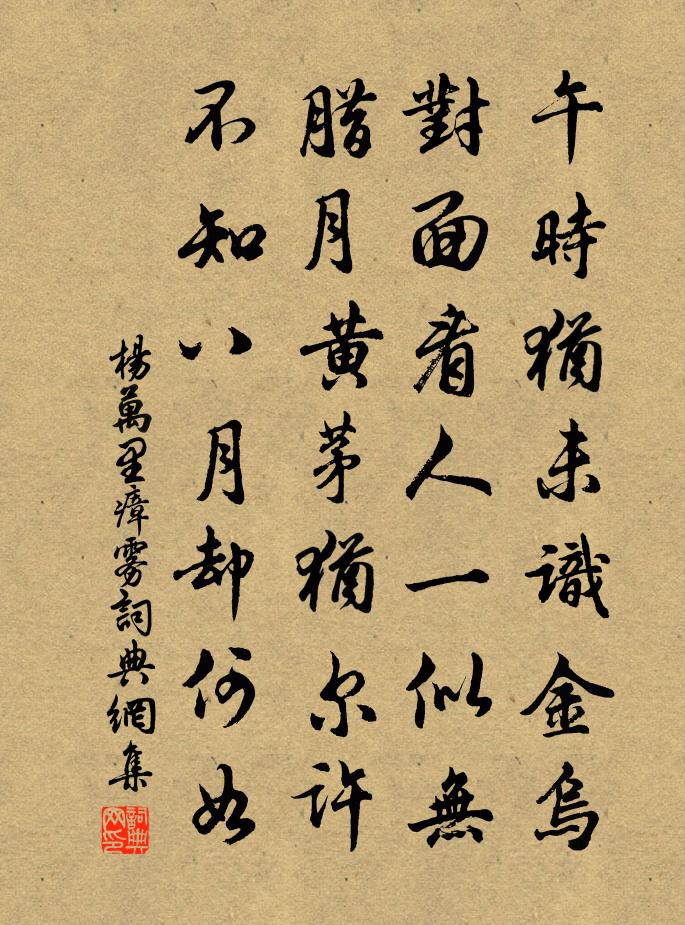 午時猶未識金烏
對面看人一似無
腊月黃茅猶尔許
不知八月却何如
楊萬里瘴雾詞典網集
詞典网印